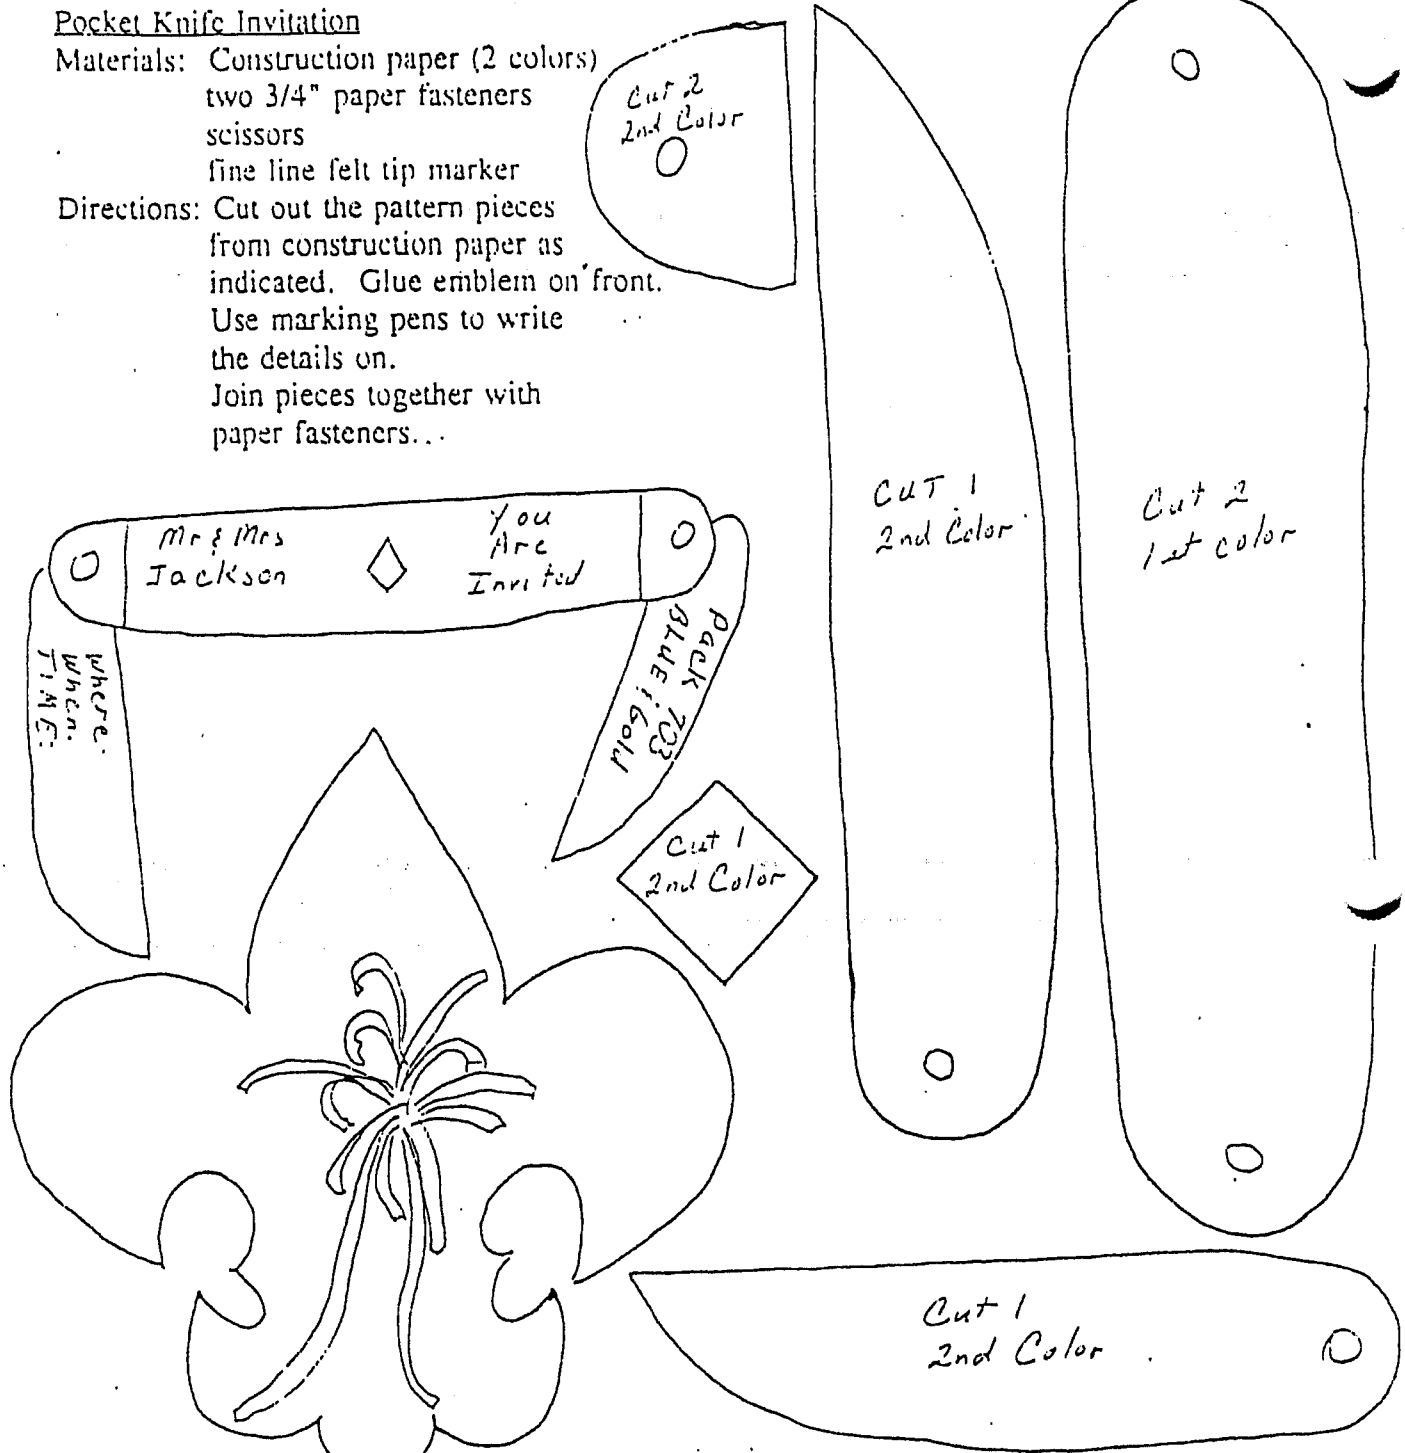 Pocket Knife Invitation
Materials: Construction paper (2 colors)
two 3/4" paper fasteners
scissors
fine line felt tip marker
Directions: Cut out the pattern pieces
from construction paper as
indicated. Glue emblem on front.
Use marking pens to write
the details on.
Join pieces together with
paper fasteners...
Cut 2
2nd Color
CUT 1
2nd Color
Cut 2
1st color
Mr & Mrs
Jackson
You
Are
Invited
Where.
When.
TIME:
Pack 703
BLUE & Gold
Cut 1
2nd Color
Cut 1
2nd Color